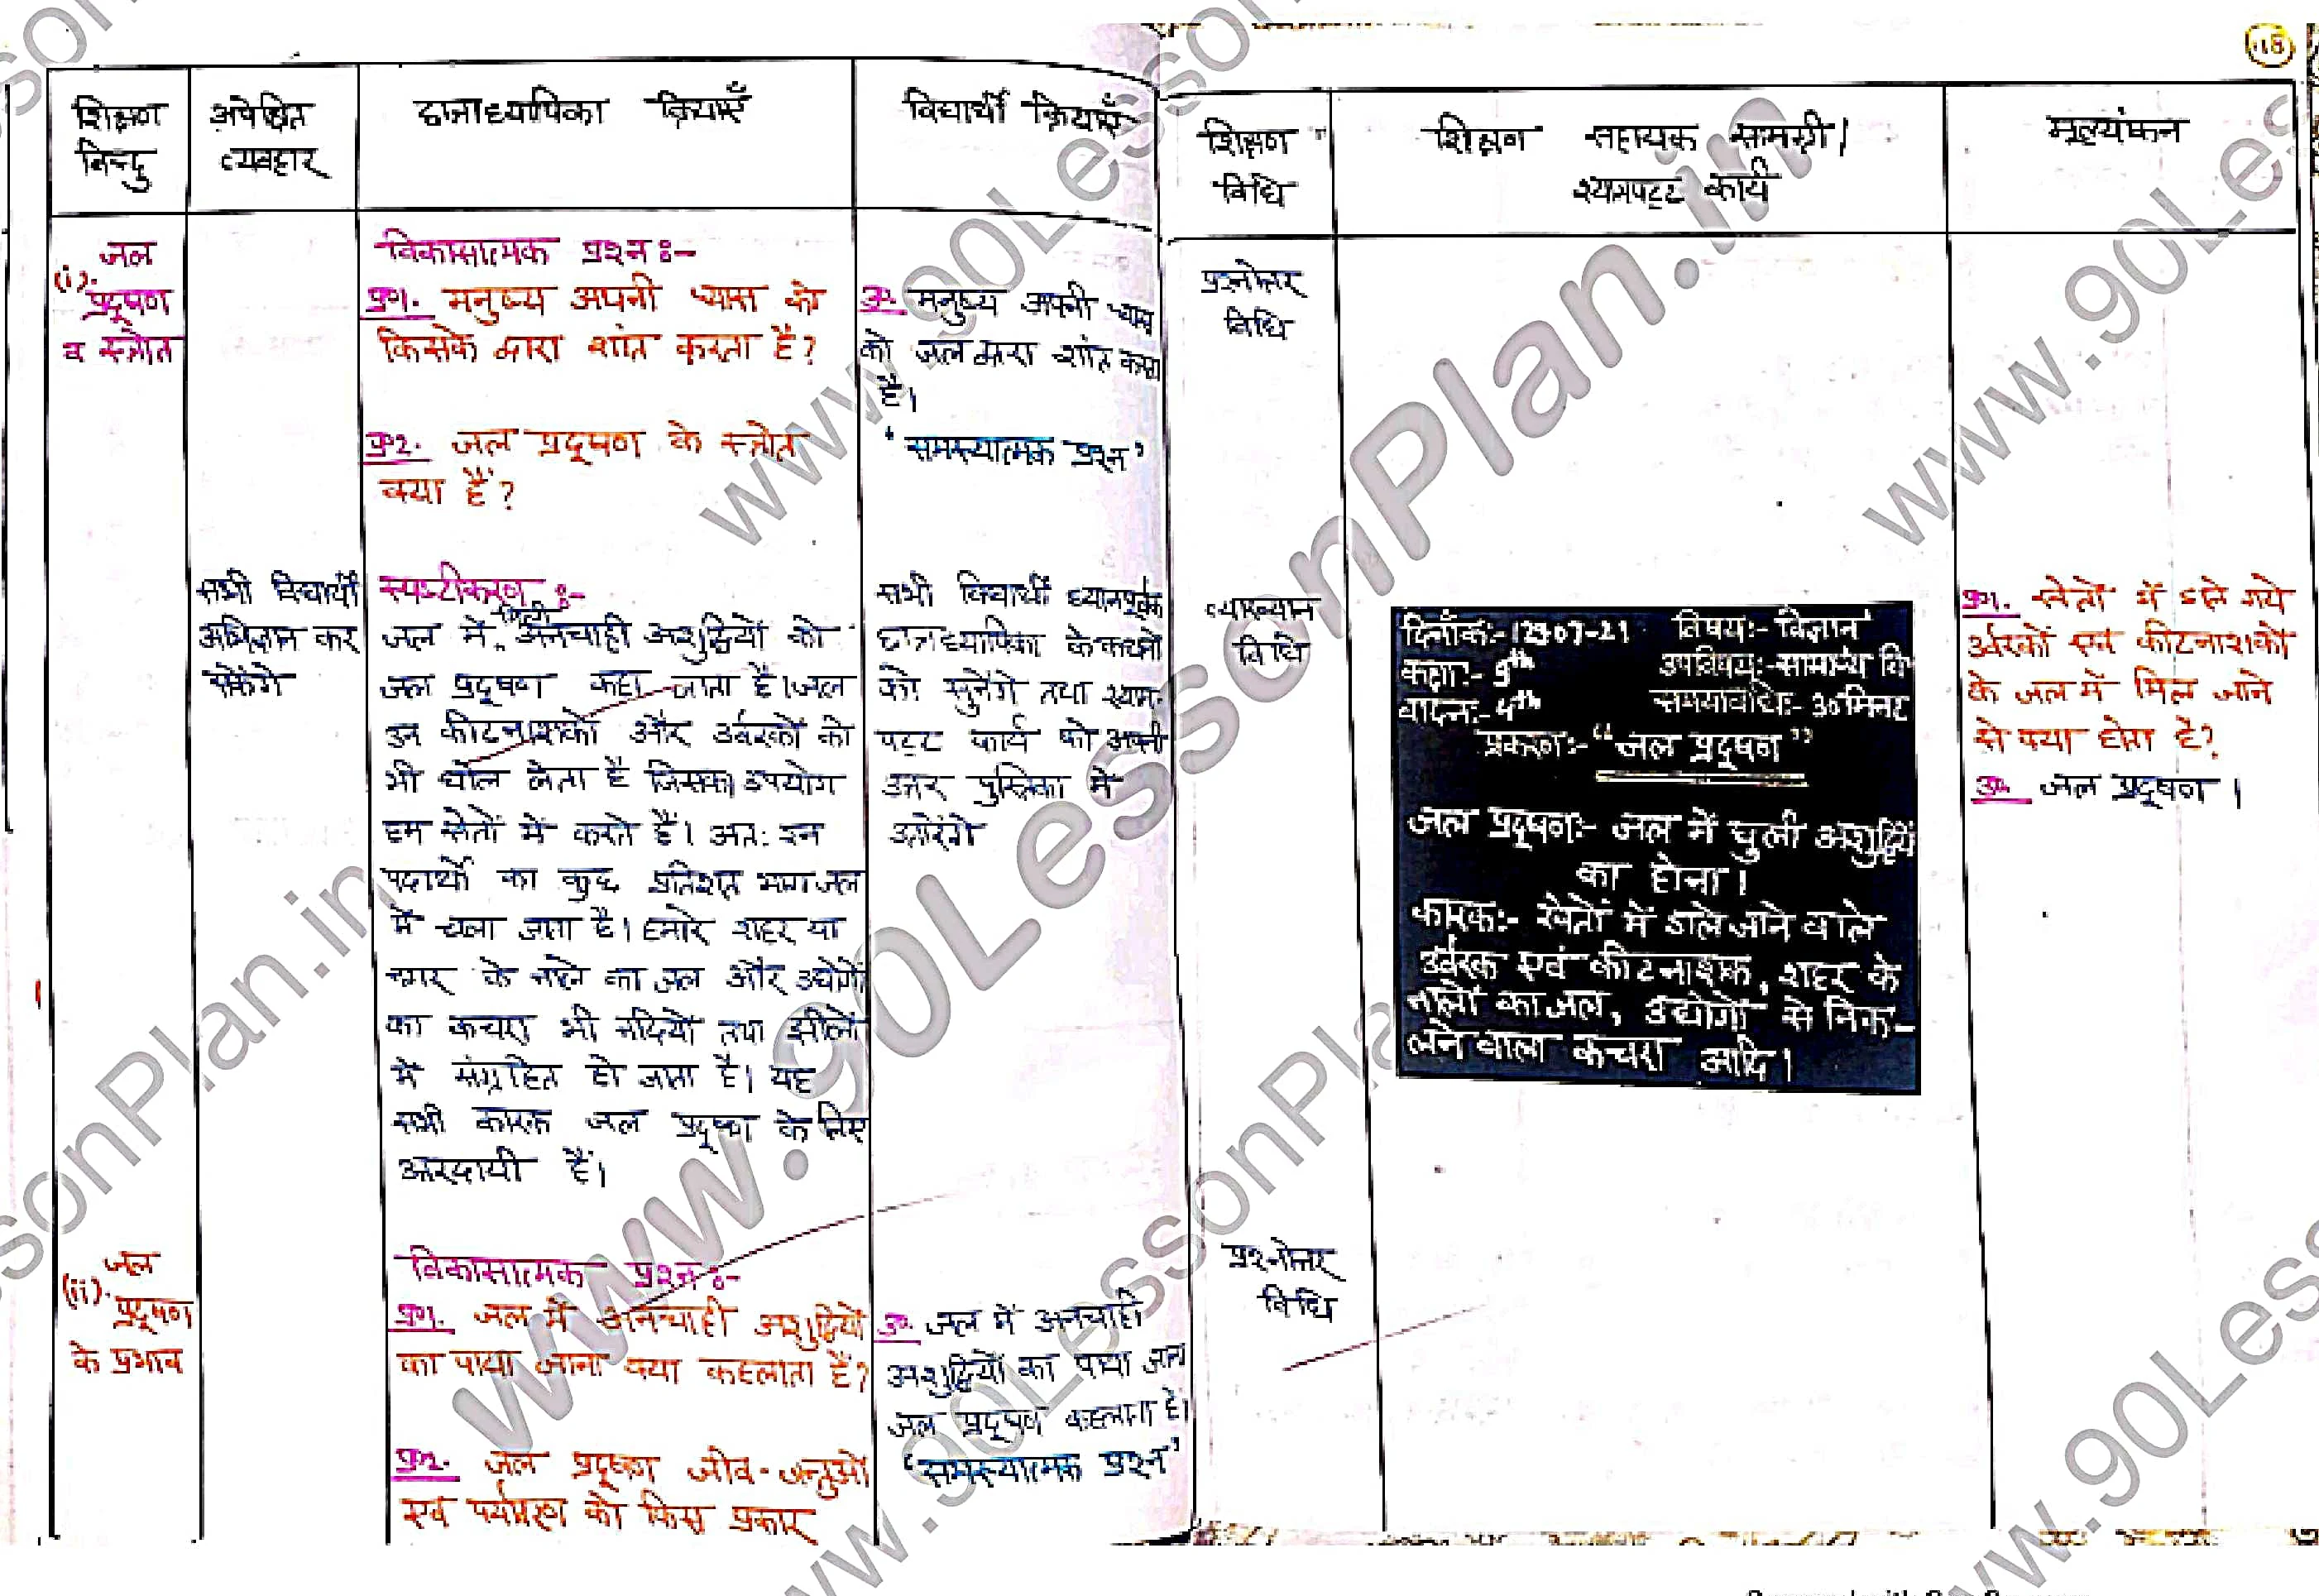 118
शिक्षण
बिन्दु
अपेक्षित
व्यवहार
छात्राध्यापिका क्रियाएँ
विद्यार्थी क्रियाएँ
शिक्षण
विधि
शिक्षण सहायक सामग्री/
श्यामपट्ट कार्य
मूल्यांकन
(i). जल
प्रदूषण
व स्त्रोत
विकासात्मक प्रश्न:-
प्र1. मनुष्य अपनी प्यास को
किसके द्वारा शांत करता है?
उ. मनुष्य अपनी प्यास
को जल द्वारा शांत करता
है।
प्रश्नोत्तर
विधि
प्र2. जल प्रदूषण के स्त्रोत
क्या है?
'समस्यात्मक प्रश्न'
सभी विद्यार्थी
अभिज्ञान कर
सकेंगे
स्पष्टीकरण:-
जल में अनचाही अशुद्धियों को
जल प्रदूषण कहा जाता है। जल
उन कीटनाशकों और उर्वरकों को
भी घोल लेता है जिसका उपयोग
हम खेतों में करते हैं। अत: इन
पदार्थो का कुछ प्रतिशत भाग जल
में चला जाता है। हमारे शहर या
नगर के नाले का जल और उद्योगों
का कचरा भी नदियों तथा झीलों
में संग्रहित हो जाता है। यह
सभी कारक जल प्रदूषण के लिए
उत्तरदायी हैं।
सभी विद्यार्थी ध्यानपूर्वक
छात्राध्यापिका के कथनों
को सुनेंगे तथा श्याम-
पट्ट कार्य को अपनी
उत्तर पुस्तिका में
उतारेंगे
व्याख्यान
विधि
दिनाँक:- 07-21 विषय:- विज्ञान
कक्षा:- 9th उपविषय:- सामान्य वि
वादन:- 4th समयावधि:- 30 मिनट
प्रकरण:- "जल प्रदूषण"
जल प्रदूषण:- जल में घुली अशुद्धियों
का होना।
कारक:- खेतों में डाले जाने वाले
उर्वरक एवं कीटनाशक, शहर के
नालों का जल, उद्योगों से निक-
लने वाला कचरा आदि।
प्र1. खेतों में डाले गये
उर्वरकों एवं कीटनाशकों
के जल में मिल जाने
से क्या होता है?
उ. जल प्रदूषण।
(ii). जल
प्रदूषण
के प्रभाव
विकासात्मक प्रश्न:-
प्र1. जल में अनचाही अशुद्धियों
का पाया जाना क्या कहलाता है?
उ. जल में अनचाही
अशुद्धियों का पाया जाना
जल प्रदूषण कहलाता है।
प्रश्नोत्तर
विधि
प्र2. जल प्रदूषण जीव-जन्तुओं
एवं पर्यावरण को किस प्रकार
'समस्यात्मक प्रश्न'
www.90LessonPlan.in